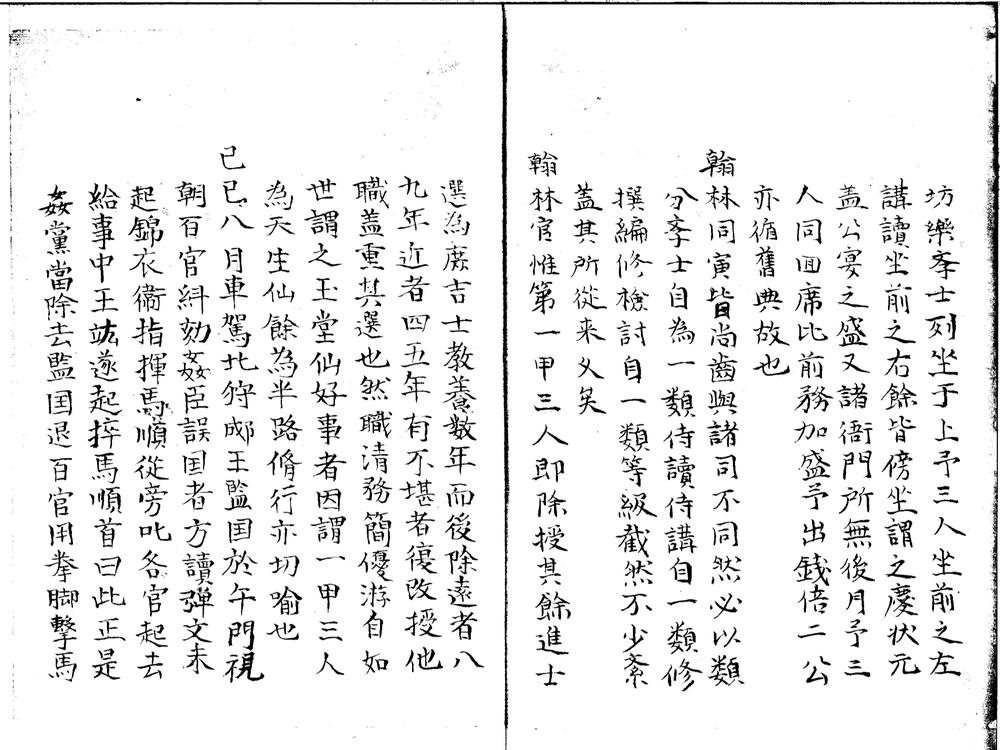 坊樂斈士列坐于上予三人坐前之左
講讀坐前之右餘皆傍坐謂之慶状元
盖公宴之盛又諸衙門所無後月予三
人同囬席比前務加盛予出錢倍二公
亦循舊典故也
翰林同寅皆尚齒與諸司不同然必以類
分斈士自為一類侍讀侍講自一類修
撰編修檢討自一類等級截然不少紊
盖其所從来乆矣
翰林官惟第一甲三人即除授其餘進士
選為庻吉士教養数年而後除遠者八
九年近者四五年有不堪者復改授他
職盖重其選也然職清務簡優游自如
世謂之玉堂仙好事者因謂一甲三人
為天生仙餘為半路脩行亦切喻也
己巳八月車駕北狩郕王監国於午門視
朝百官糾劾姦臣誤国者方讀弹文未
起錦衣衞指揮馬順從旁叱各官起去
給事中王竑遂起捽馬順首曰此正是
姦黨當除去監国退百官用拳脚擊馬